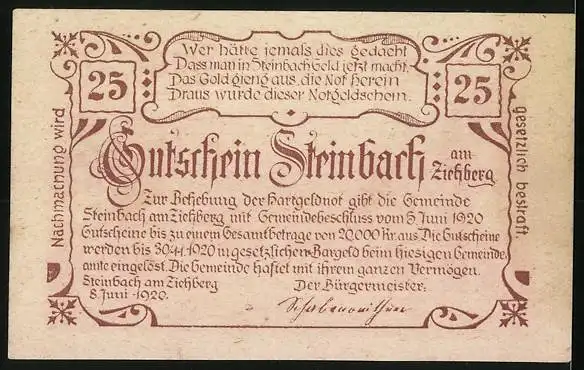 Wer hätte jemals dies gedacht
Dass man in Steinbach Geld jetzt macht.
Das Gold gieng aus, die Not herein
Draus wurde dieser Notgeldschein.
25
25
Nachmachung wird
gesetzlich bestraft.
Gutschein Steinbach am
Ziehberg
Zur Behebung der Hartgeldnot gibt die Gemeinde
Steinbach am Ziehberg mit Gemeindebeschluss vom 5 Juni 1920
Gutscheine bis zu einem Gesamtbetrage von 20.000 Kr. aus. Die Gutscheine
werden bis 30.11.1920 in gesetzlichen Bargeld beim hiesigen Gemeinde,
amte eingelöst. Die Gemeinde haftet mit ihrem ganzen Vermögen.
Steinbach am Ziehberg
8 Juni 1920.
Der Bürgermeister: